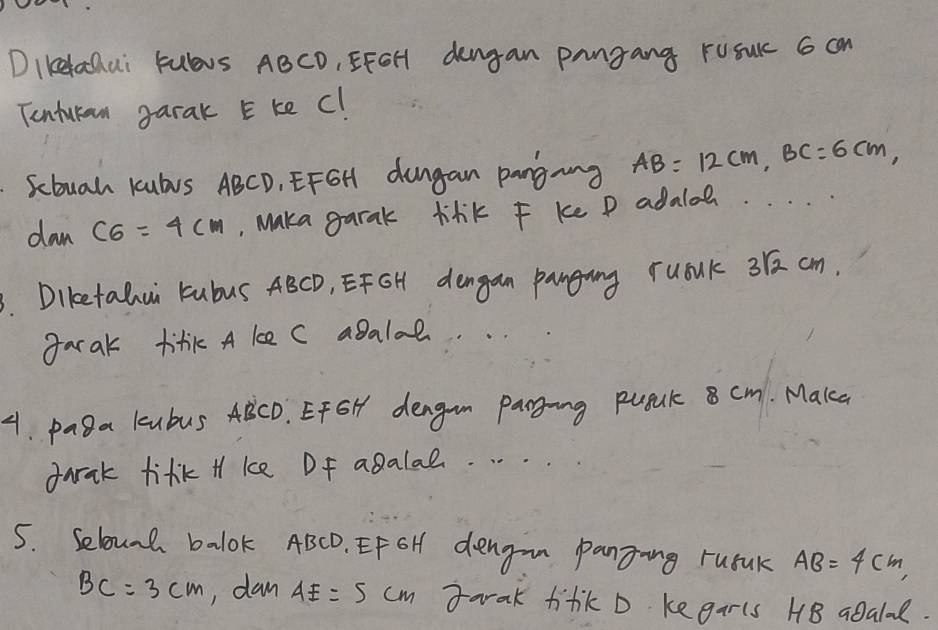 Diketahui kubus ABCD, EFGH dengan pangang rusuk 6 cm
Tentukan garak E ke C!
Sebuah kubus ABCD, EFGH dengan pangang AB = 12 cm, BC = 6 cm,
dan CG = 4 cm, Maka garak titik F ke D adalah .....
3. Diketahui kubus ABCD, EFGH dengan pangang rusuk 3√2 cm.
Jarak titik A ke C adalah ....
4. pada kubus ABCD. EFGH dengan pangang rusuk 8 cm. Maka
Jarak titik H ke DF adalah .....
5. Sebuah balok ABCD. EFGH dengan pangang rusuk AB = 4 cm,
BC = 3 cm, dan AE = 5 cm Jarak titik D ke garis HB adalah.